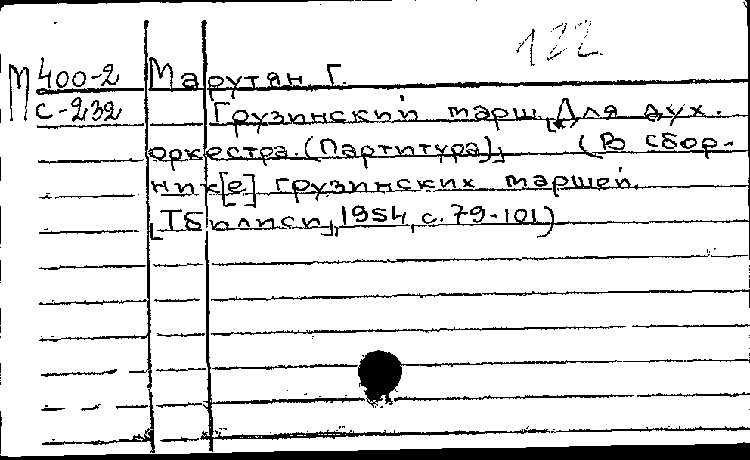 122
М 400-2 Марутян Г.
С-232 Грузинский марш. [Для дух.
оркестра. (Партитура)] (В сбор-
ник[е] грузинских маршей.
[Тбилиси], 1954, с. 79-101)